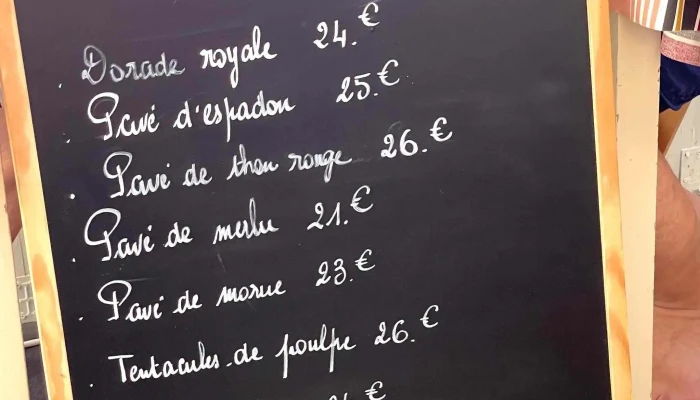 . Dorade royale 24.€
. Pavé d'espadon 25.€
. Pavé de thon rouge 26.€
. Pavé de merlu 21.€
. Pavé de morue 23.€
. Tentacules de poulpe 26.€
€